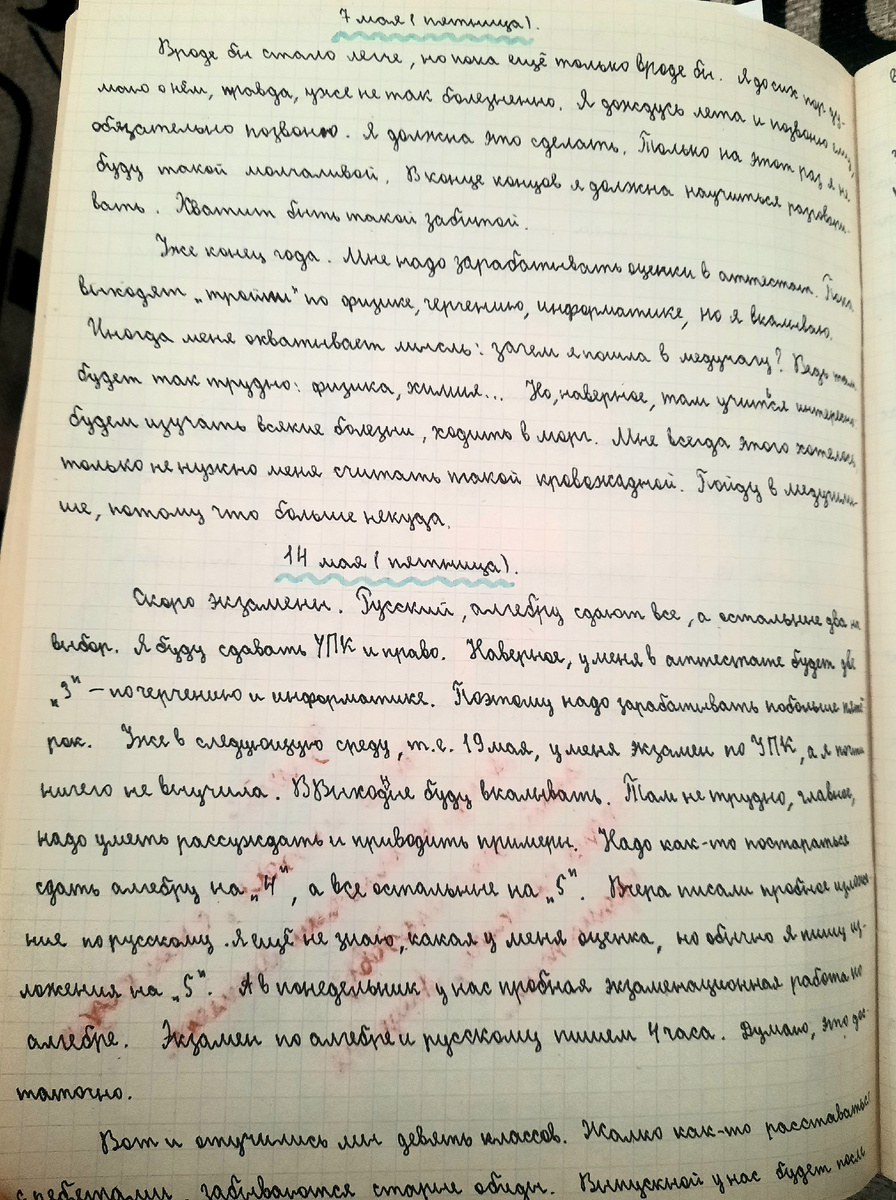 7 мая (пятница).
Вроде бы стало легче, но пока ещё только вроде бы. Я до сих пор ду-
маю о нём, правда, уже не так болезненно. Я дождусь лета и позвоню ему,
обязательно позвоню. Я должна это сделать. Только на этот раз я не
буду такой молчаливой. В конце концов я должна научиться разгова-
вать. Хватит быть такой забитой.
Уже конец года. Мне надо зарабатывать оценки в аттестат. Пока
выходят „тройки" по физике, черчению, информатике, но я вкалываю.
Иногда меня охватывает мысль: зачем я пошла в медучагу? Ведь там
будет так трудно: физика, химия... Но, наверное, там учиться интересно:
будем изучать всякие болезни, ходить в морг. Мне всегда этого хотелось,
только не нужно меня считать такой кровожадной. Пойду в медучили-
ще, потому что больше некуда.
14 мая (пятница).
Скоро экзамены. Русский, алгебру сдают все, а остальные два на
выбор. Я буду сдавать УПК и право. Наверное, у меня в аттестате будет две
„3" – по черчению и информатике. Поэтому надо зарабатывать побольше пятё
рок. Уже в следующую среду, т.е. 19 мая, у меня экзамен по УПК, а я почти
ничего не выучила. В Выходные буду вкалывать. Там не трудно, главное,
надо уметь рассуждать и приводить примеры. Надо как-то постараться
сдать алгебру на „4", а все остальные на „5". Вчера писали пробное изложе
ние по русскому. Я ещё не знаю, какая у меня оценка, но обычно я пишу из-
ложения на „5". А в понедельник у нас пробная экзаменационная работа по
алгебре. Экзамен по алгебре и русскому пишем 4 часа. Думаю, это дос-
таточно.
Вот и отучились мы девять классов. Жалко как-то расставаться
с ребятами, забываются старые обиды. Выпускной у нас будет после